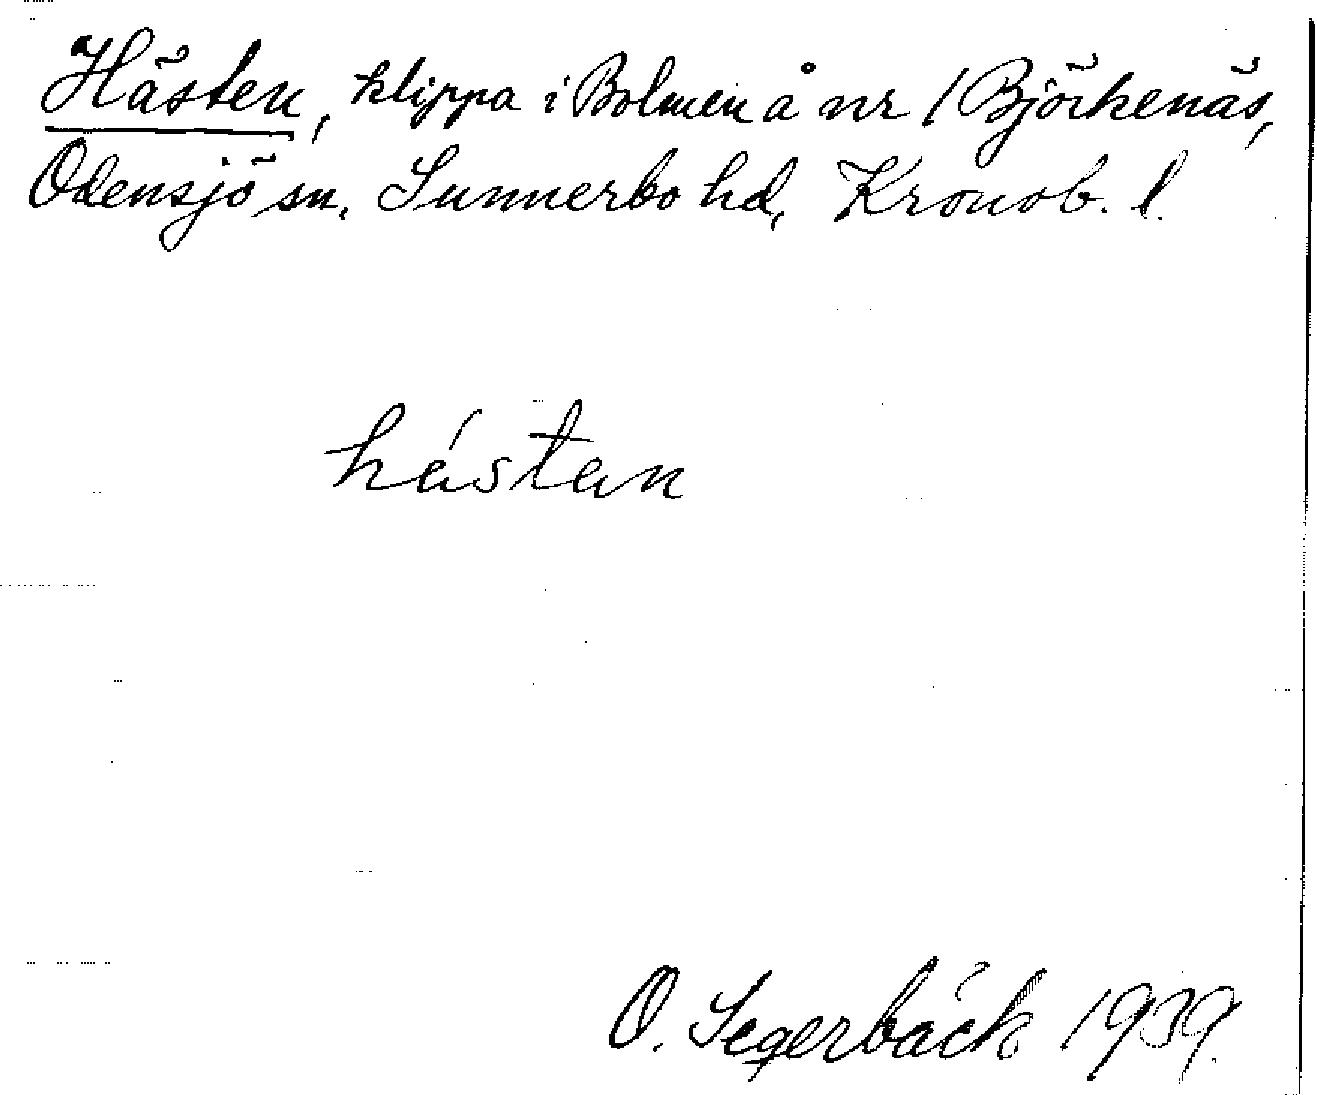 Hästen, klippa i Bolmen å nr 1 Björkenäs,
Odensjö sn. Sunnerbo hd, Kronob. l.
hästan
O. Segerbäck 1939.